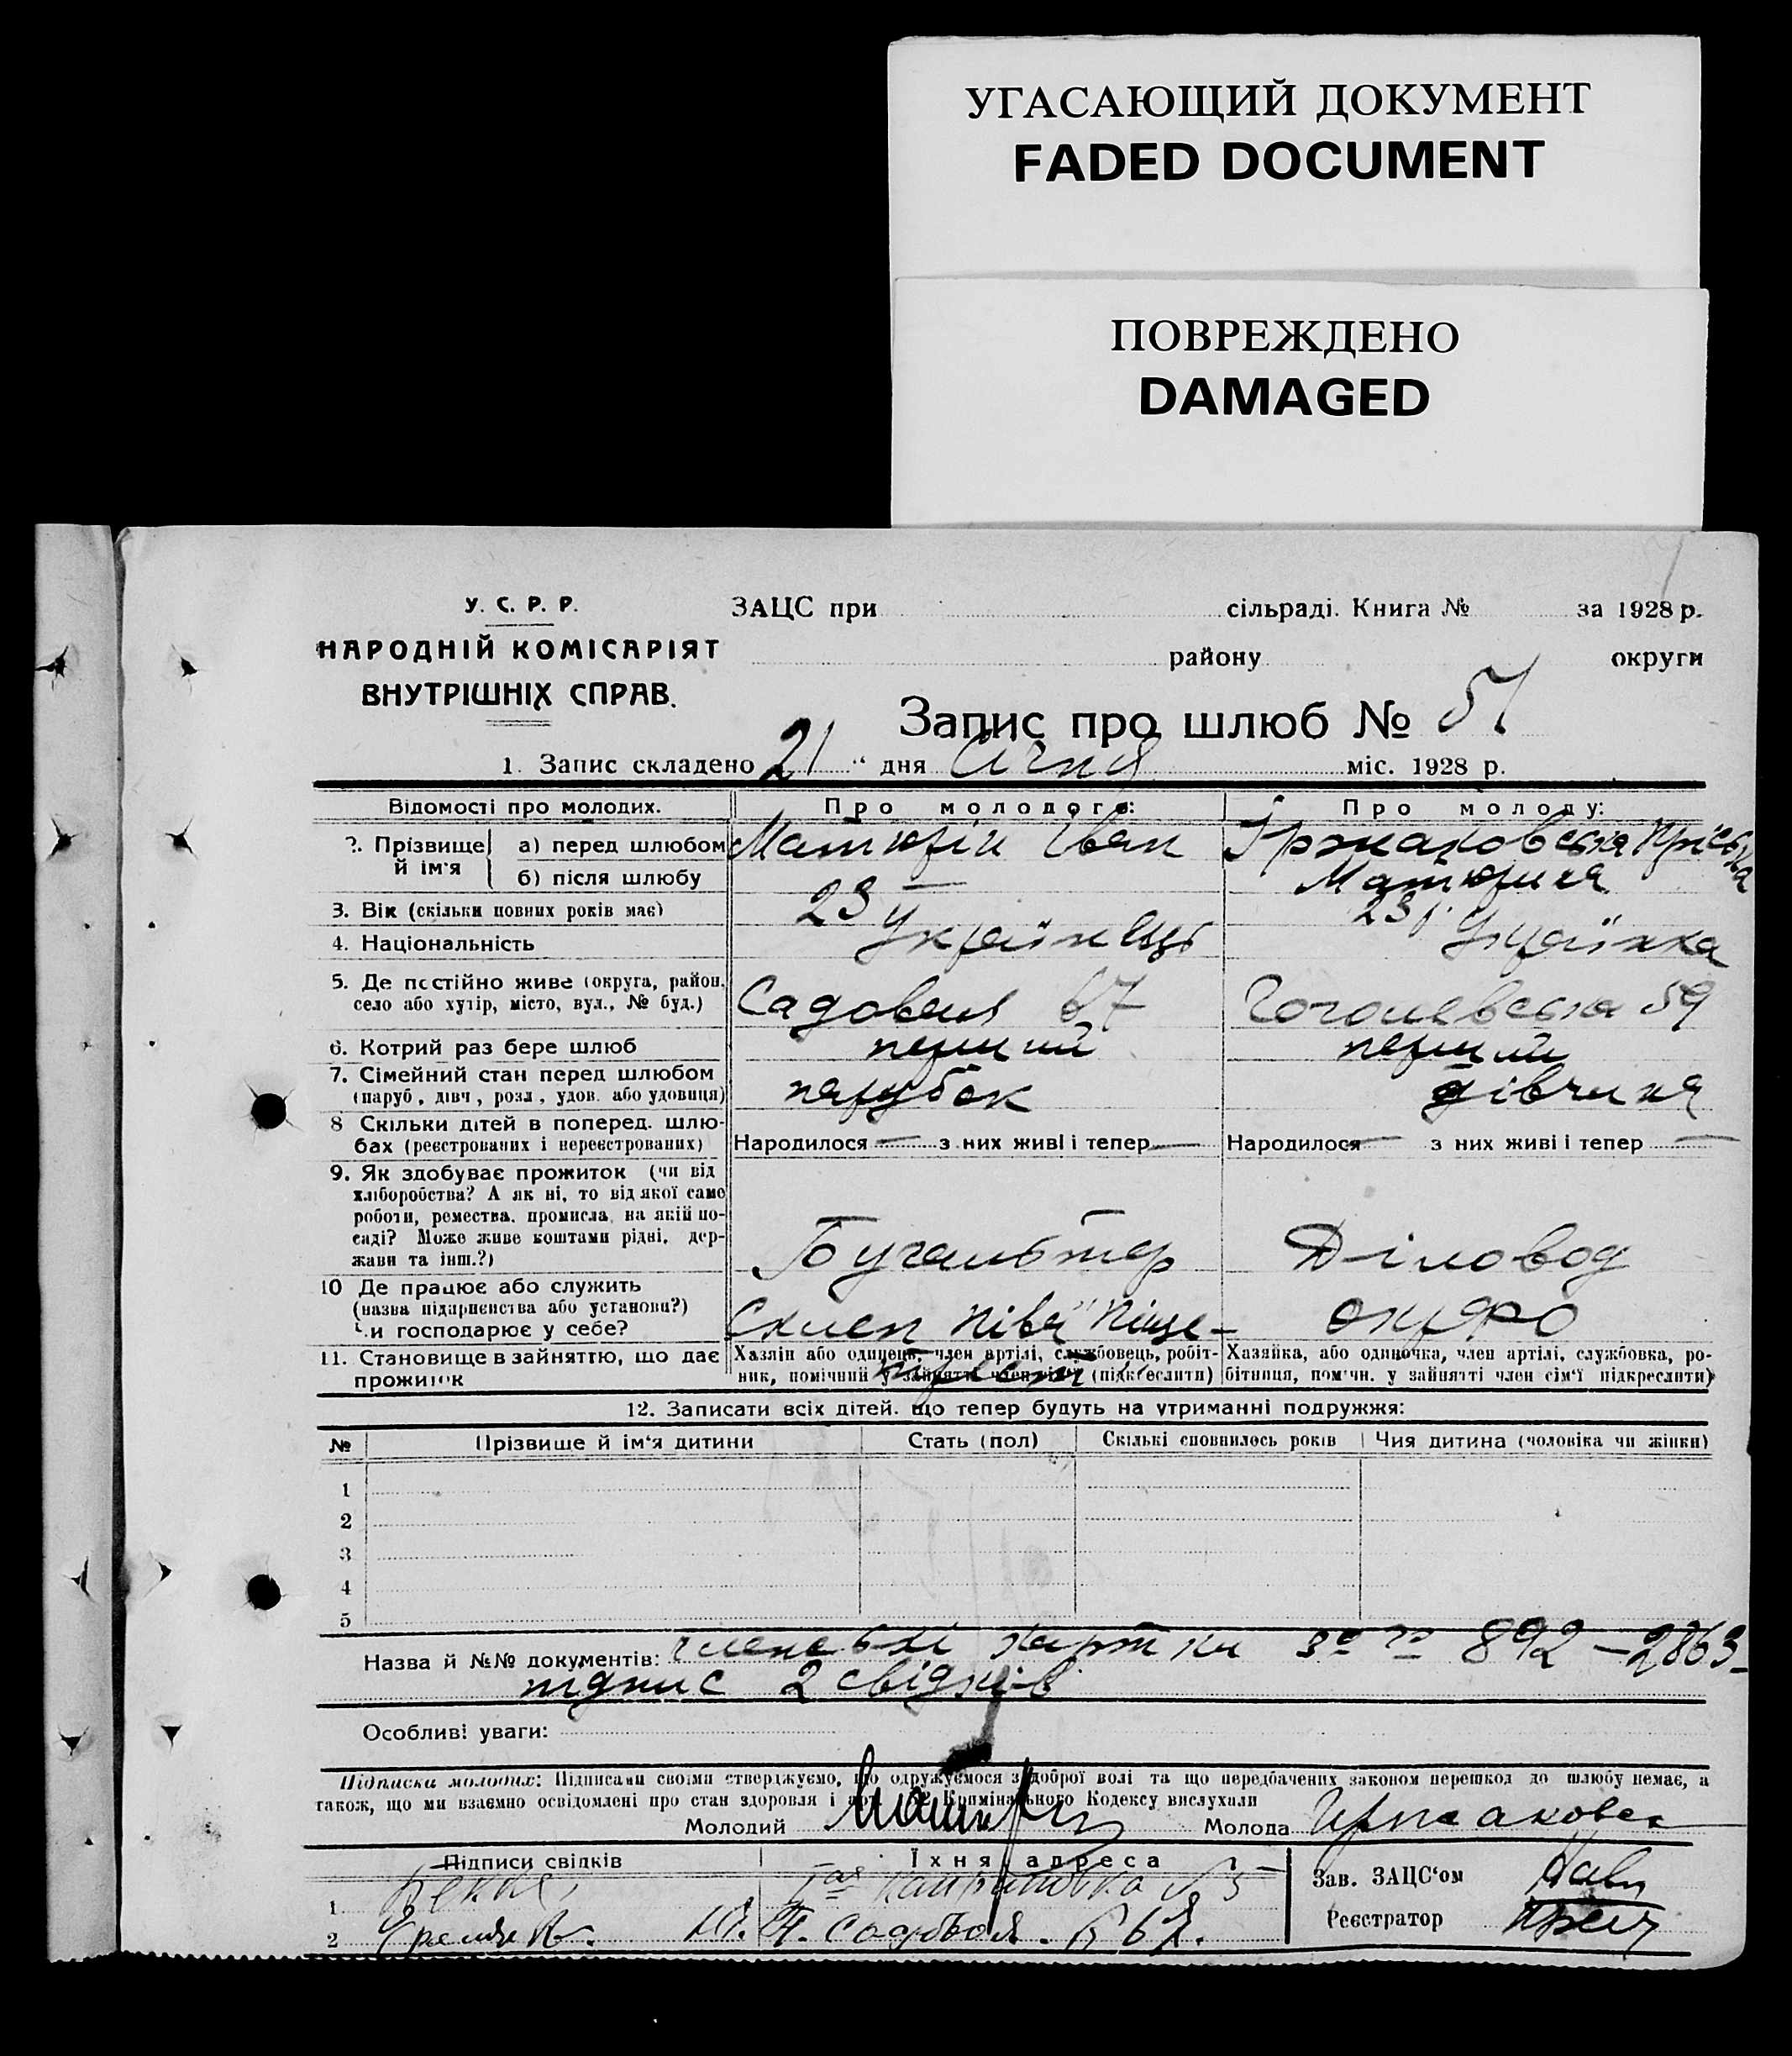 УГАСАЮЩИЙ ДОКУМЕНТ
FADED DOCUMENT
ПОВРЕЖДЕНО
DAMAGED
У. С. Р. Р.
НАРОДНІЙ КОМІСАРІЯТ
ВНУТРІШНІХ СПРАВ.
ЗАЦС при сільраді. Книга № за 1928 р.
району округи
Запис про шлюб № 51
1. Запис складено 21 " дня Січня міс. 1928 р.
Відомості про молодих. Про молодого: Про молоду:
2. Прізвище й ім'я
а) перед шлюбом Матюфін Іван
б) після шлюбу — Матюфина
3. Вік (скільки повних років має) 23 23 р.
4. Національність Українець Українка
5. Де постійно живе (округа, район, село або хутір, місто, вул., № буд.) Садовая 67 Гоголевська 59
6. Котрий раз бере шлюб перший перший
7. Сімейний стан перед шлюбом (паруб., дівч., розл., удов. або удовиця) парубок дівчина
8 Скільки дітей в поперед. шлюбах (реєстрованих і нереєстрованих) Народилося — з них живі і тепер — Народилося — з них живі і тепер —
9. Як здобуває прожиток (чи від хліборобства? А як ні, то від якої само роботи, ремества, промисла, на якій посаді? Може живе коштами рідні, держави та інш.?) Бугальтер Діловод
10 Де працює або служить (назва підприємства або установи?) Чи господарює у себе? Склеп
11. Становище в зайняттю, що дає прожиток
Хазяїн або одинець, член артілі, службовець, робітник, помічний у зайнятті член сім'ї (підкреслити)
Хазяйка, або одиночка, член артілі, службовка, робітниця, пом'чн. у зайнятті член сім'ї підкреслити)
12. Записати всіх дітей, що тепер будуть на утриманні подружжя:
№ Прізвище й ім'я дитини Стать (пол) Скількі сповнилось років Чия дитина (чоловіка чи жінки)
1
2
3
4
5
Назва й №№ документів: членські картки за № 892 — 2863
підпис 2 свідків
Особливі уваги:
Підписка молодих: Підписами своїми стверджуємо, що одружуємося з доброї волі та що передбачених законом перешкод до шлюбу немає, а
також, що ми взаємно освідомлені про стан здоровля і Кримінального Кодексу вислухали
Молодий Молода
Підписи свідків Їхня адреса
1
2 Садовая 67.
Зав. ЗАЦС'ом
Реєстратор